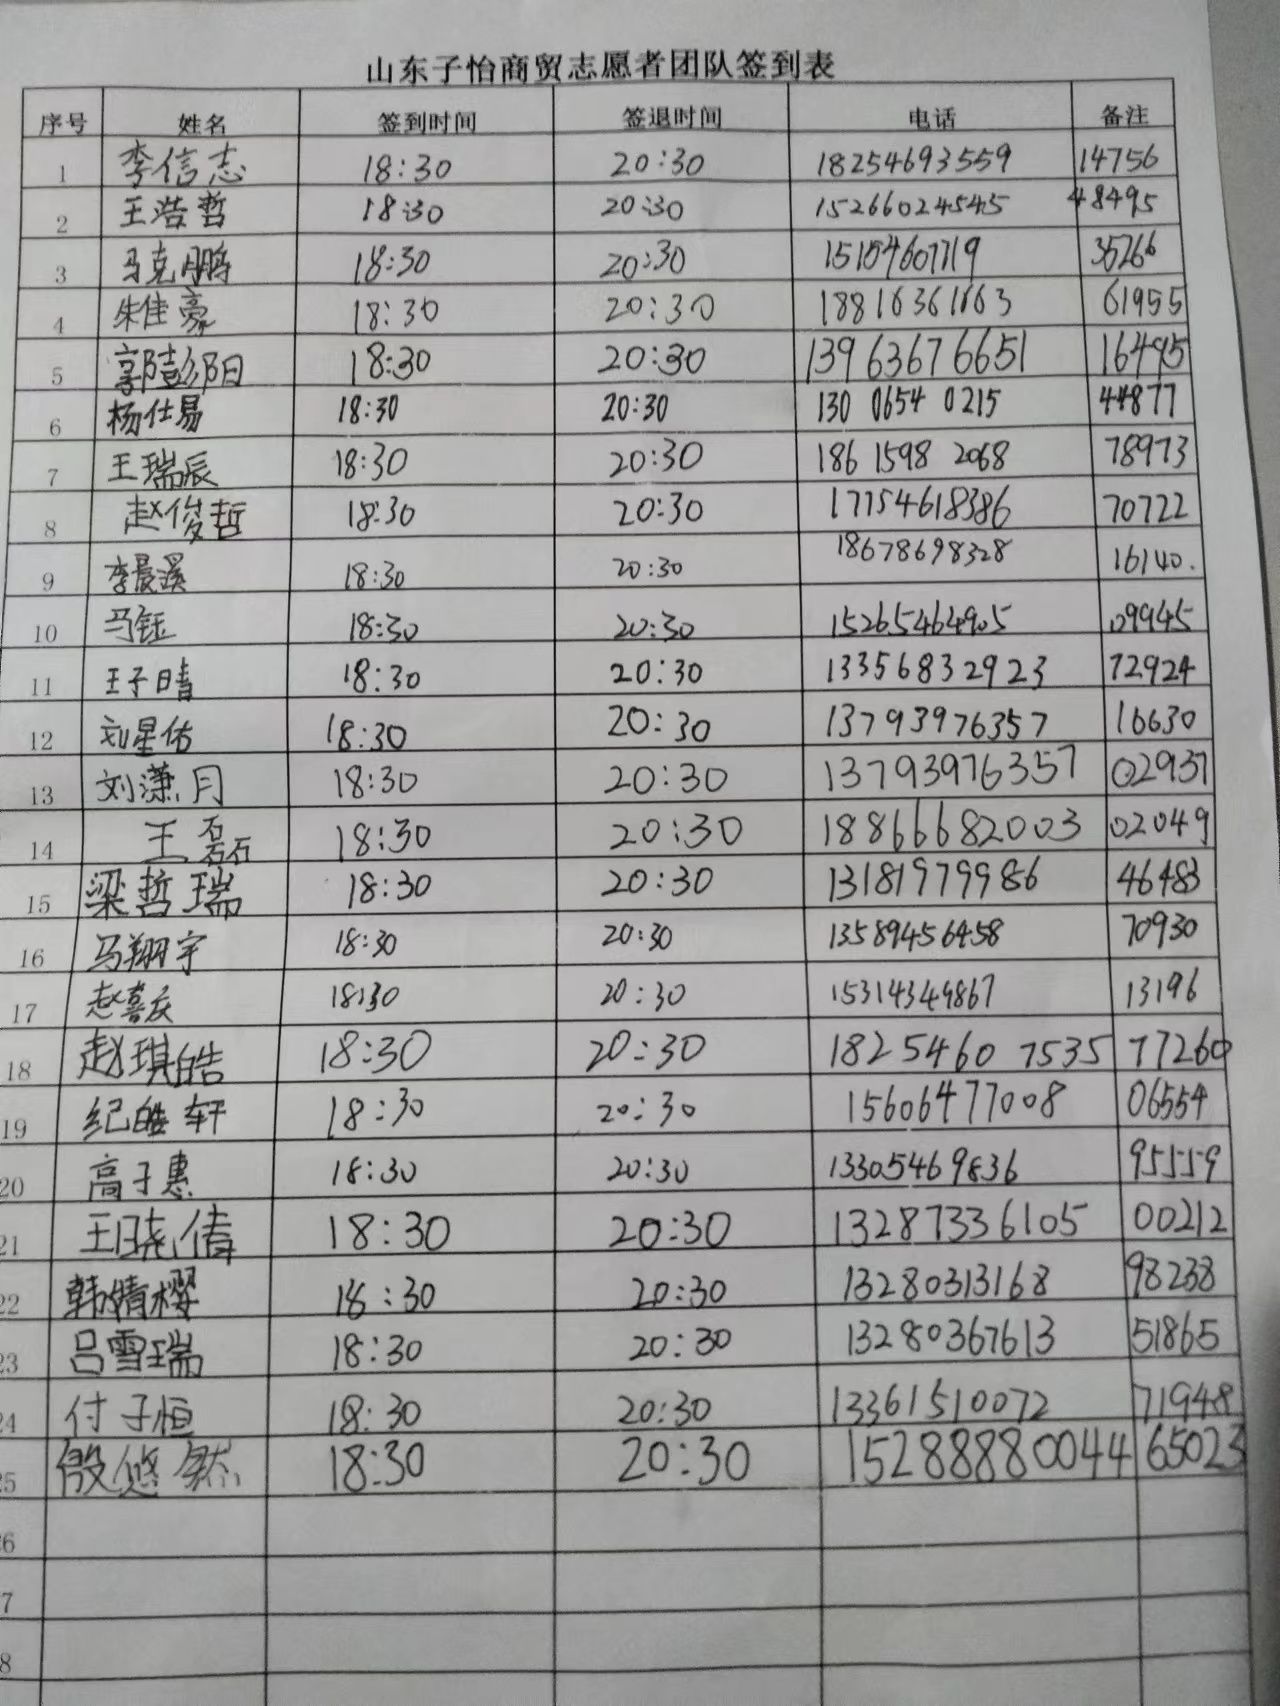 山东子怡商贸志愿者团队签到表
序号 姓名 签到时间 签退时间 电话 备注
1 李信志 18:30 20:30 18254693559 14756
2 王浩哲 18:30 20:30 15266024545 48495
3 马克鹏 18:30 20:30 15154607719 35266
4 朱佳豪 18:30 20:30 18816361663 61955
5 郭彭阳 18:30 20:30 13963676651 16495
6 杨仕易 18:30 20:30 130 0654 0215 44877
7 王瑞辰 18:30 20:30 186 1598 2068 78973
8 赵俊哲 18:30 20:30 17754618386 70722
9 李晨溪 18:30 20:30 18678698328 16140.
10 马钰 18:30 20:30 15265464905 09945
11 王子晴 18:30 20:30 13356832923 72924
12 刘星佑 18:30 20:30 13793976357 16630
13 刘潇月 18:30 20:30 13793976357 02937
14 王磊 18:30 20:30 18866682003 02049
15 梁哲瑞 18:30 20:30 13181979986 46483
16 马翔宇 18:30 20:30 13589456458 70930
17 赵喜庆 18:30 20:30 15314349867 13196
18 赵琪皓 18:30 20:30 1825460 7535 77260
19 纪皓轩 18:30 20:30 15606477008 06554
20 高子惠 18:30 20:30 13305469836 95559
21 王晓倩 18:30 20:30 13287336105 00212
22 韩婧樱 18:30 20:30 13280313168 98238
23 吕雪瑞 18:30 20:30 13280367613 51865
24 付子恒 18:30 20:30 13361510072 71948
5 殷悠然 18:30 20:30 15288880044 65023
6
7
8